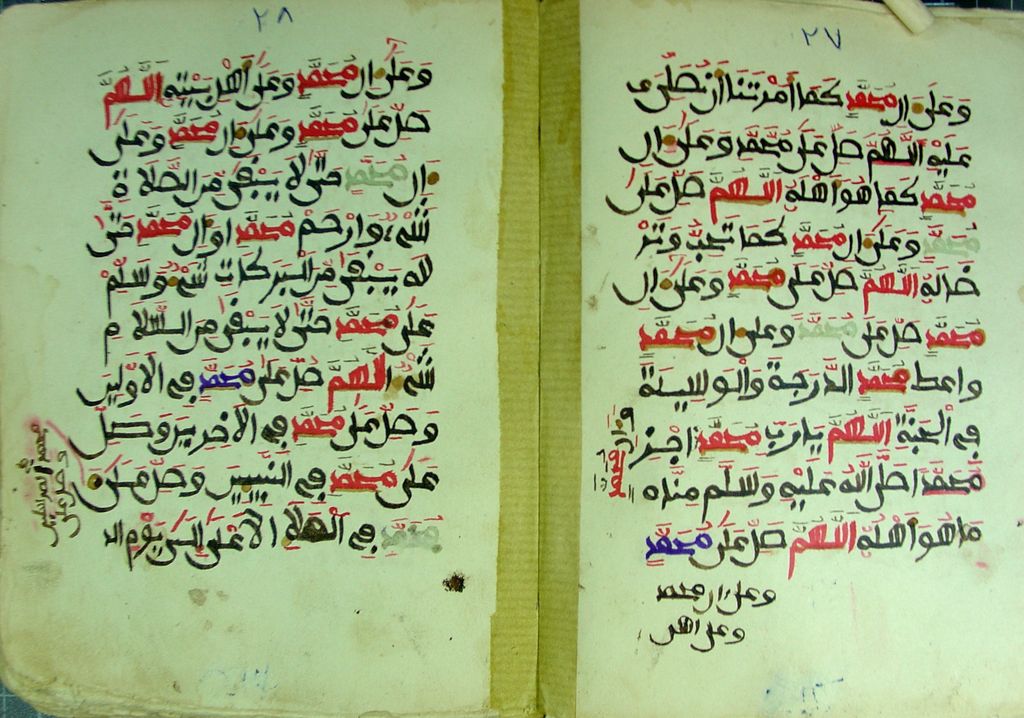 ٢٧
وعلى ال محمد كما أمرتنا أن نصلى
عليه اللهم صل على محمد وعلى ال
محمد كما هو أهله اللهم صل على
محمد وعلى ال محمد كما تحب وتر
ضاله اللهم صل على محمد وعلى ال
محمد صل على محمد وعلى ال محمد
واعط محمد الدرجة والوسيلة
في الجنة اللهم يا رب محمد اجز
وال محمد
محمدا صلى الله عليه وسلم مناه
ما هو أهله اللهم صل على محمد
وعلى ال محمد
وعلى اهل
٢٨
وعلى ال محمد وعلى أهل بيته اللهم
صل على محمد وعلى ال محمد وعلى
ال محمد حتى لا يبقى من الصلاة
شىء وارحم محمد او ال محمد حتى
لله يبقى من البركات شىء وسلم
على محمد حتى لا يبقى من السلام
شىء اللهم صل على محمد في الاولين
وصل على محمد في الاخرين وصل
على محمد في النبيين وصل على
محمد في الملا الاعلى الى يوم الد